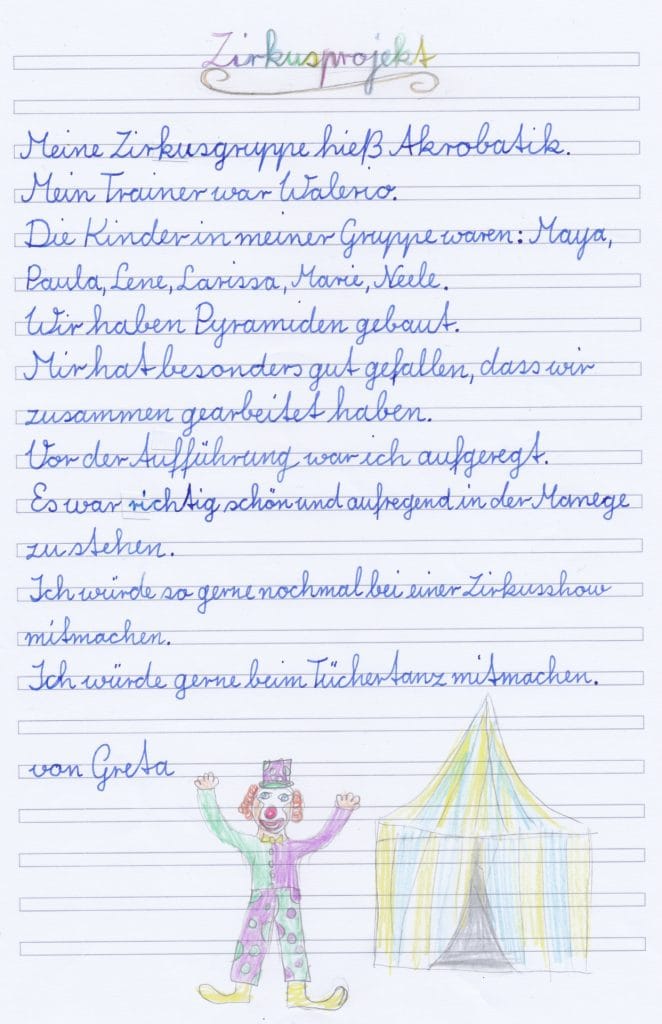 Zirkusprojekt
Meine Zirkusgruppe hieß Akrobatik.
Mein Trainer war Walerio.
Die Kinder in meiner Gruppe waren: Maya,
Paula, Lene, Larissa, Marie, Neele.
Wir haben Pyramiden gebaut.
Mir hat besonders gut gefallen, dass wir
zusammen gearbeitet haben.
Vor der Aufführung war ich aufgeregt.
Es war richtig schön und aufregend in der Manege
zu stehen.
Ich würde so gerne nochmal bei einer Zirkusshow
mitmachen.
Ich würde gerne beim Tüchertanz mitmachen.
von Greta